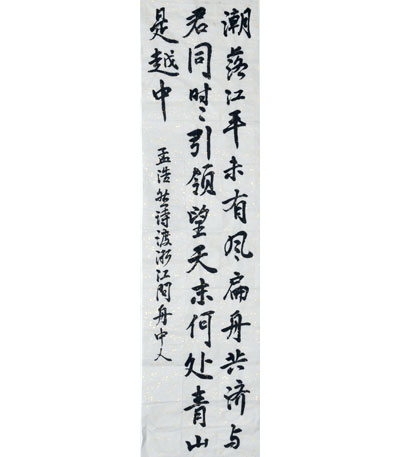 潮落江平未有风扁舟共济与
君同时〻引领望天末何处青山
是越中
孟浩然诗渡浙江问舟中人